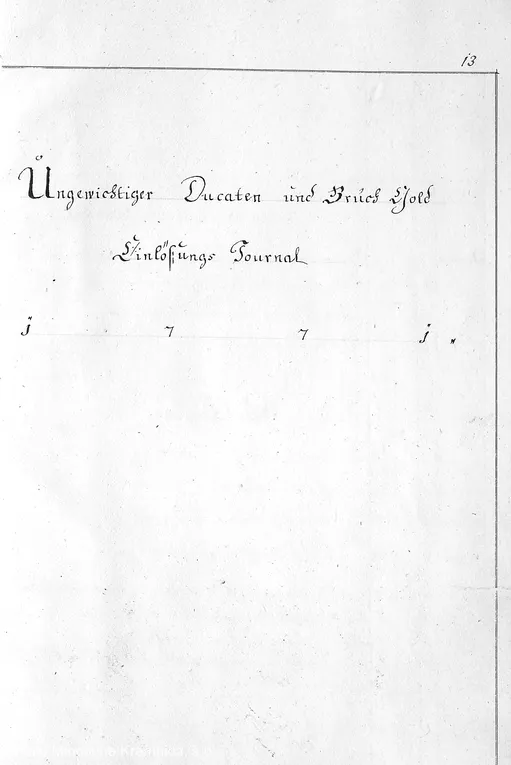 13
Ungewichtiger Ducaten und Bruch Gold
Einlösungs Journal
j 7 7 j „